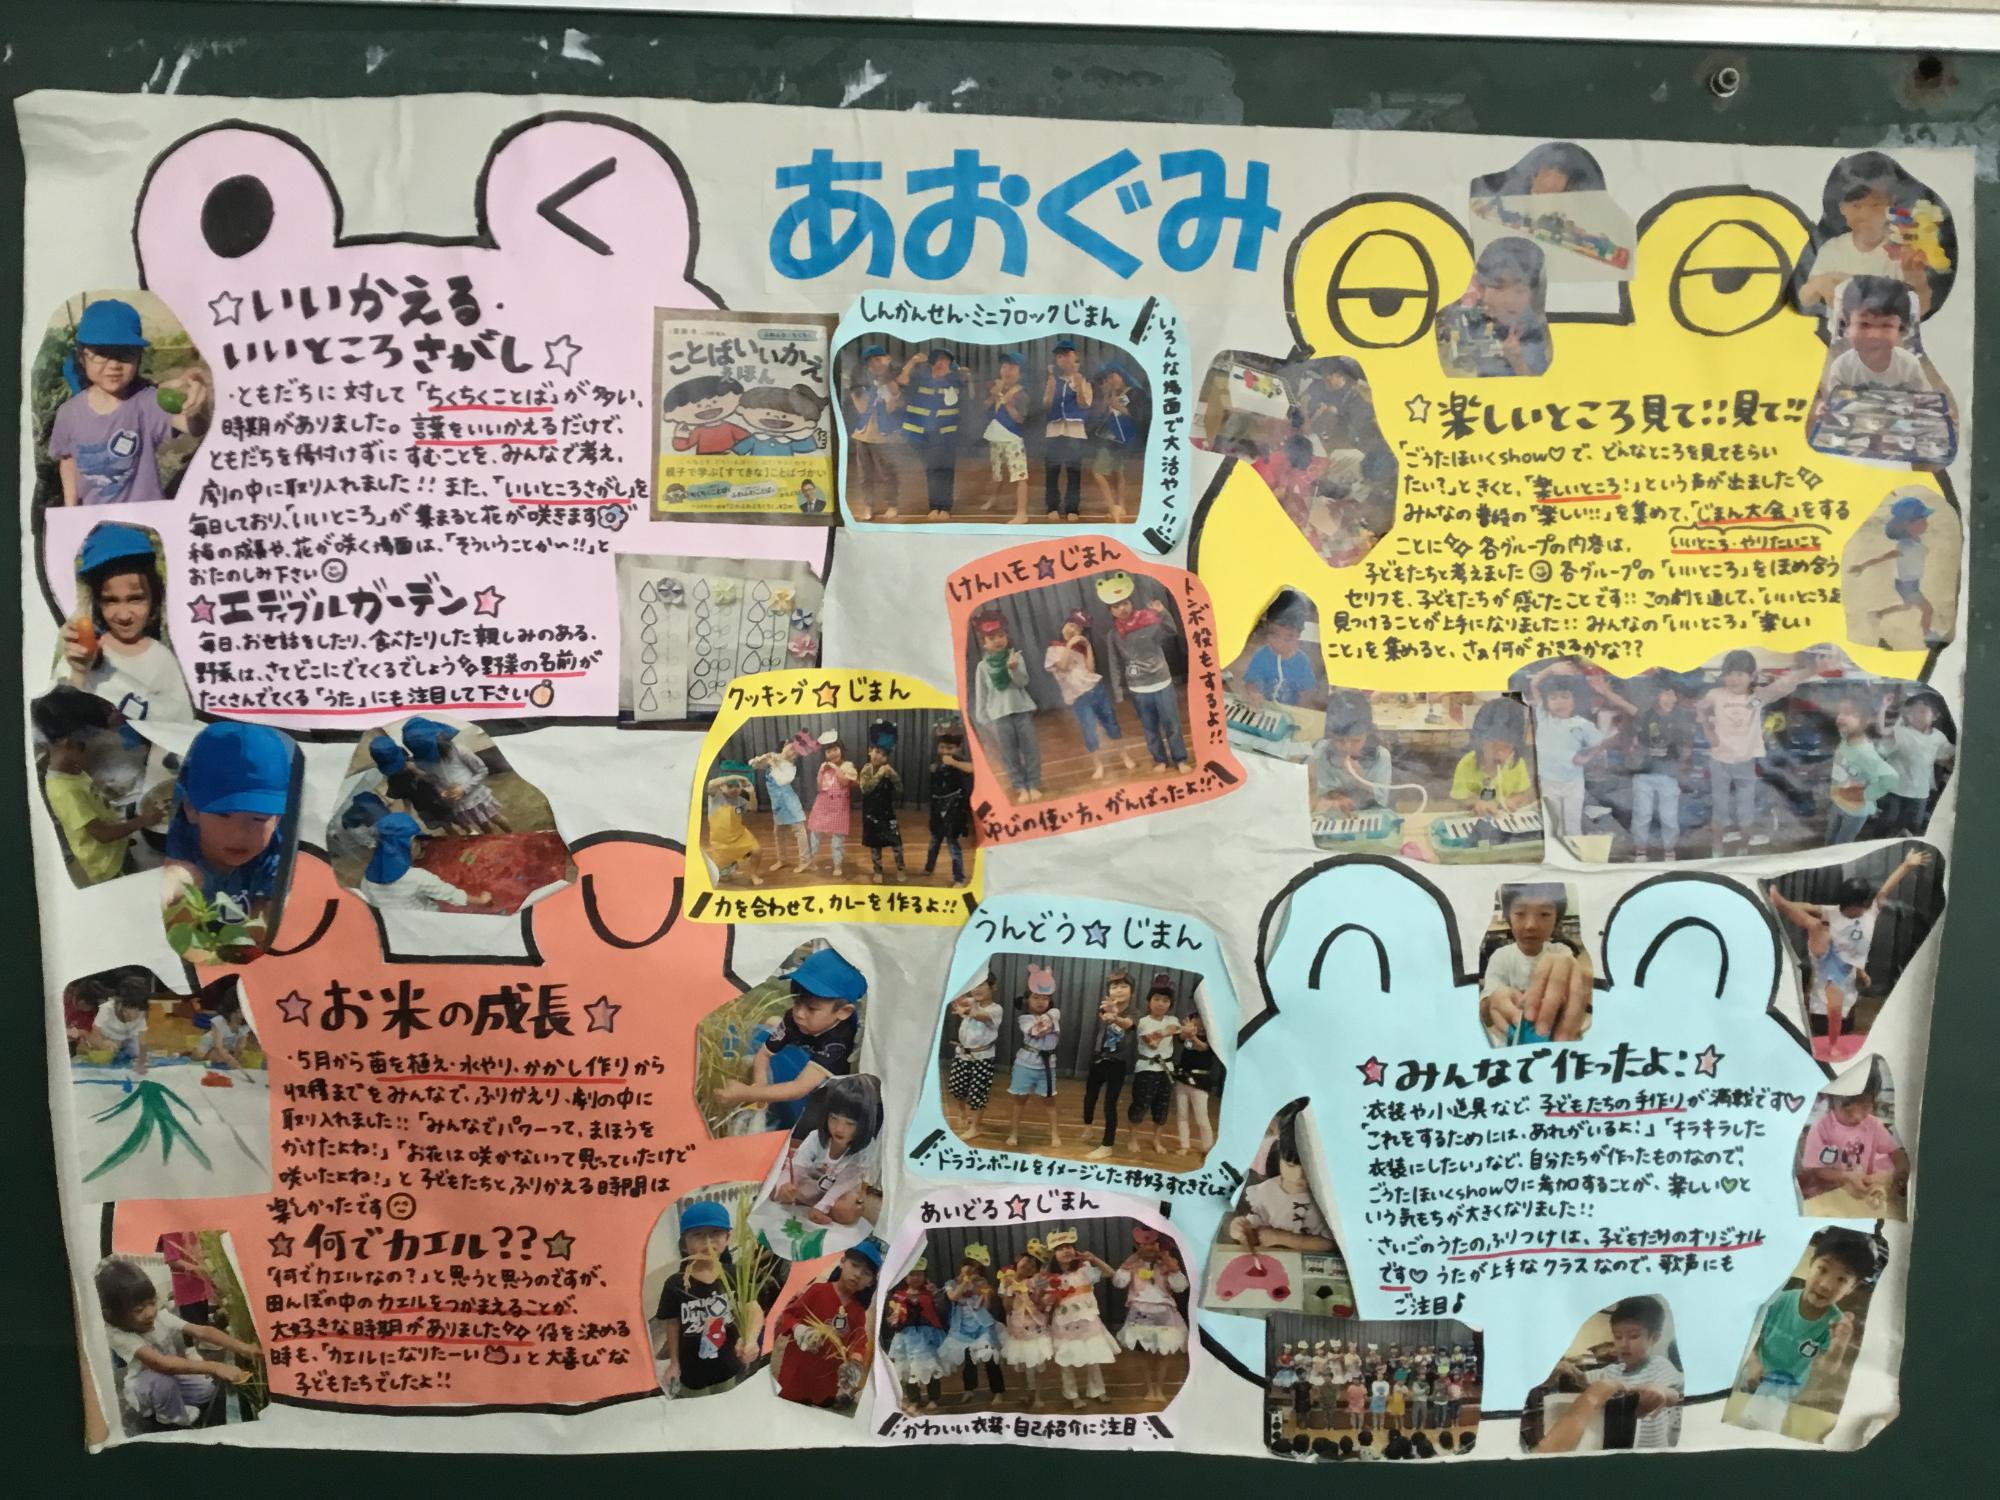 あおぐみ
☆いいかえる・
いいところさがし☆
・ともだちに対して「ちくちくことば」が多い、
時期がありました。言葉をいいかえるだけで、
ともだちを傷付けずにすむことを、みんなで考え、
劇の中に取り入れました!!また、「いいところさがし」を
毎日しており、「いいところ」が集まると花が咲きます
種の成長や、花が咲く場面は、「そういうことかー!!」と
おたのしみ下さい
★エディブルガーデン★
毎日、お世話をしたり、食べたりした親しみのある、
野菜は、さてどこにでてくるでしょう 野菜の名前が
たくさんでてくる「うた」にも注目して下さい
ことばいいかえ
えほん
親子で学ぶ【すてきな】ことばづかい
しんかんせん・ミニブロックじまん
いろんな場面で大活やく!!
けんハモ★じまん
トンボ役もするよ!!
ゆびの使い方、がんばったよ!!
クッキング☆じまん
力を合わせて、カレーを作るよ!!
うんどう☆じまん
ドラゴンボールをイメージした格好すてきでしょ
あいどる☆じまん
かわいい衣装・自己紹介に注目
☆楽しいところ見て!!見て!!
「ごうたほいくshow♡で、どんなところを見てもらい
たい?」ときくと、「楽しいところ!」という声が出ました
みんなの普段の「楽しい!!」を集めて、「じまん大会」をする
いいところ・やりたいこと
ことに 各グループの内容は、
子どもたちと考えました 各グループの「いいところ」をほめ合う
セリフも、子どもたちが感じたことです!!この劇を通して、「いいところを
見つけることが上手になりました!!みんなの「いいところ」「楽しい
こと」を集めると、さぁ何がおきるかな??
☆お米の成長☆
・5月から苗を植え・水やり、かかし作りから
収穫までをみんなで、ふりかえり、劇の中に
取り入れました!!「みんなでパワーって、まほうを
かけたよね!」「お花は咲かないって思っていたけど
咲いたよね!」と子どもたちと、ふりかえる時間は
楽しかったです
☆何でカエル??☆
「何でカエルなの?」と思うと思うのですが、
田んぼの中のカエルをつかまえることが、
大好きな時期がありました 役を決める
時も、「カエルになりたーい」と大喜びな
子どもたちでしたよ!!
★みんなで作ったよ!☆
・衣装や小道具など、子どもたちの手作りが満載です♡
「これをするためには、あれがいるよ!」「キラキラした
衣装にしたい」など、自分たちが作ったものなので、
ごうたほいくshow♡に参加することが、楽しい♡と
いう気もちが大きくなりました!!
・さいごのうたのふりつけは、子どもだけのオリジナル
です♡うたが上手なクラスなので、歌声にも
ご注目♪